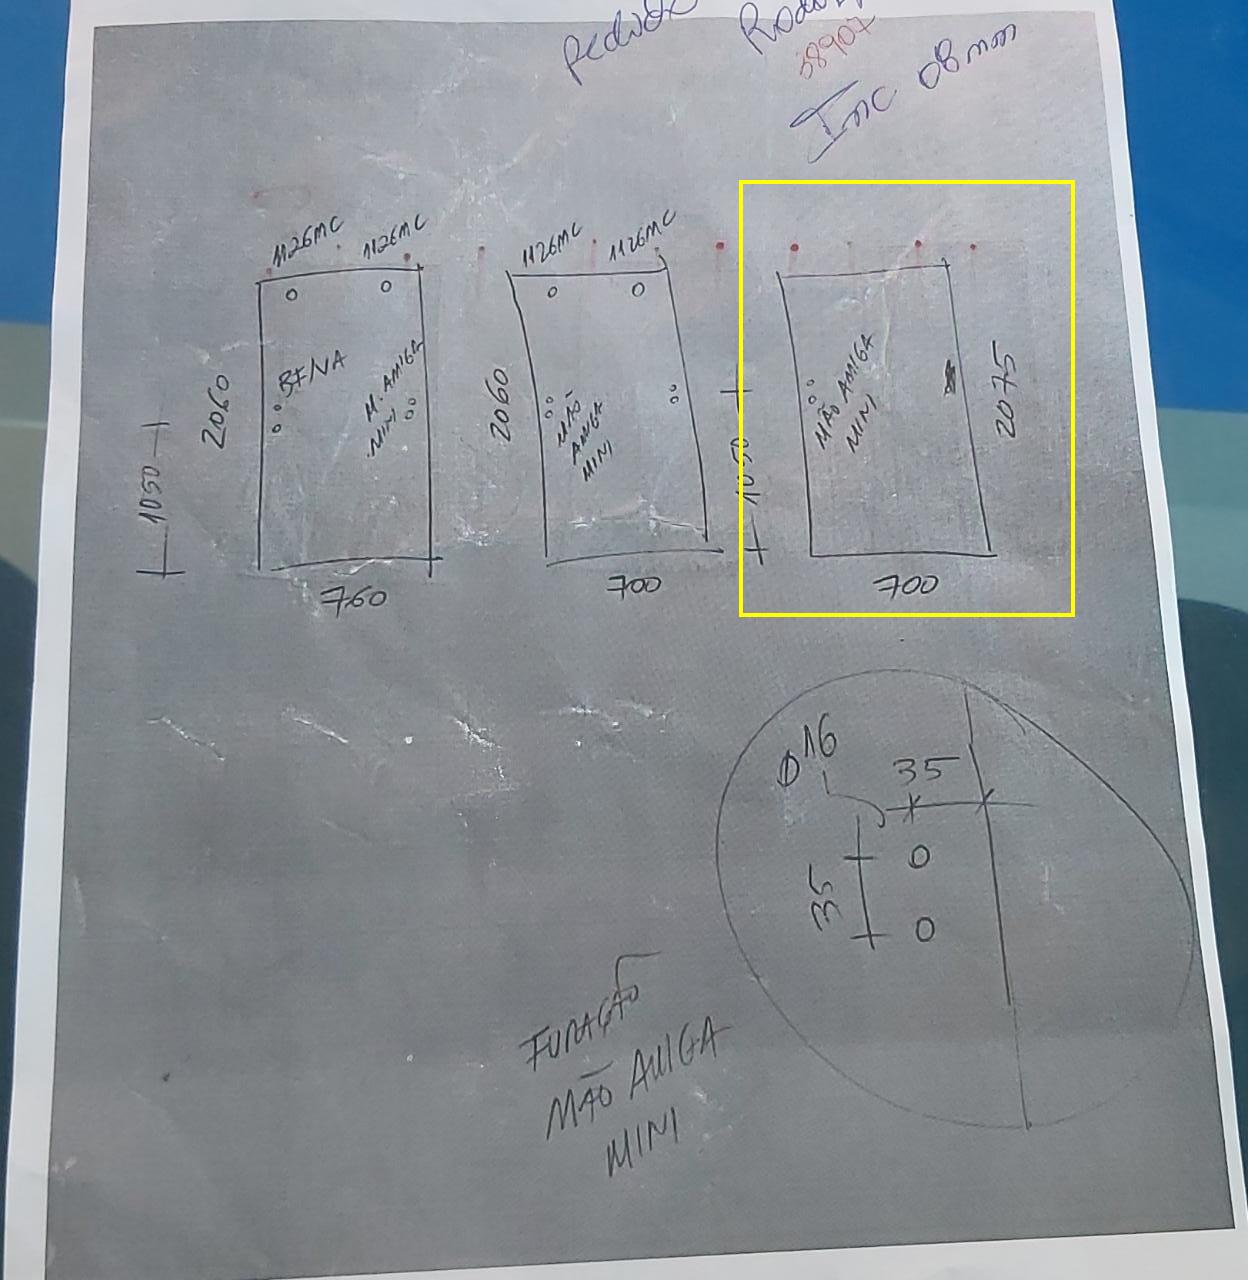 Pedido
38907
Inc 08mm
1126MC 1126MC
BFNA
M. AMIGA
MINI
2060
1050
760
1126MC 1126MC
MÃO
AMIGA
MINI
2060
700
MÃO AMIGA
MINI
2075
1050
700
Ø16
35
35
FURAÇÃO
MÃO AMIGA
MINI